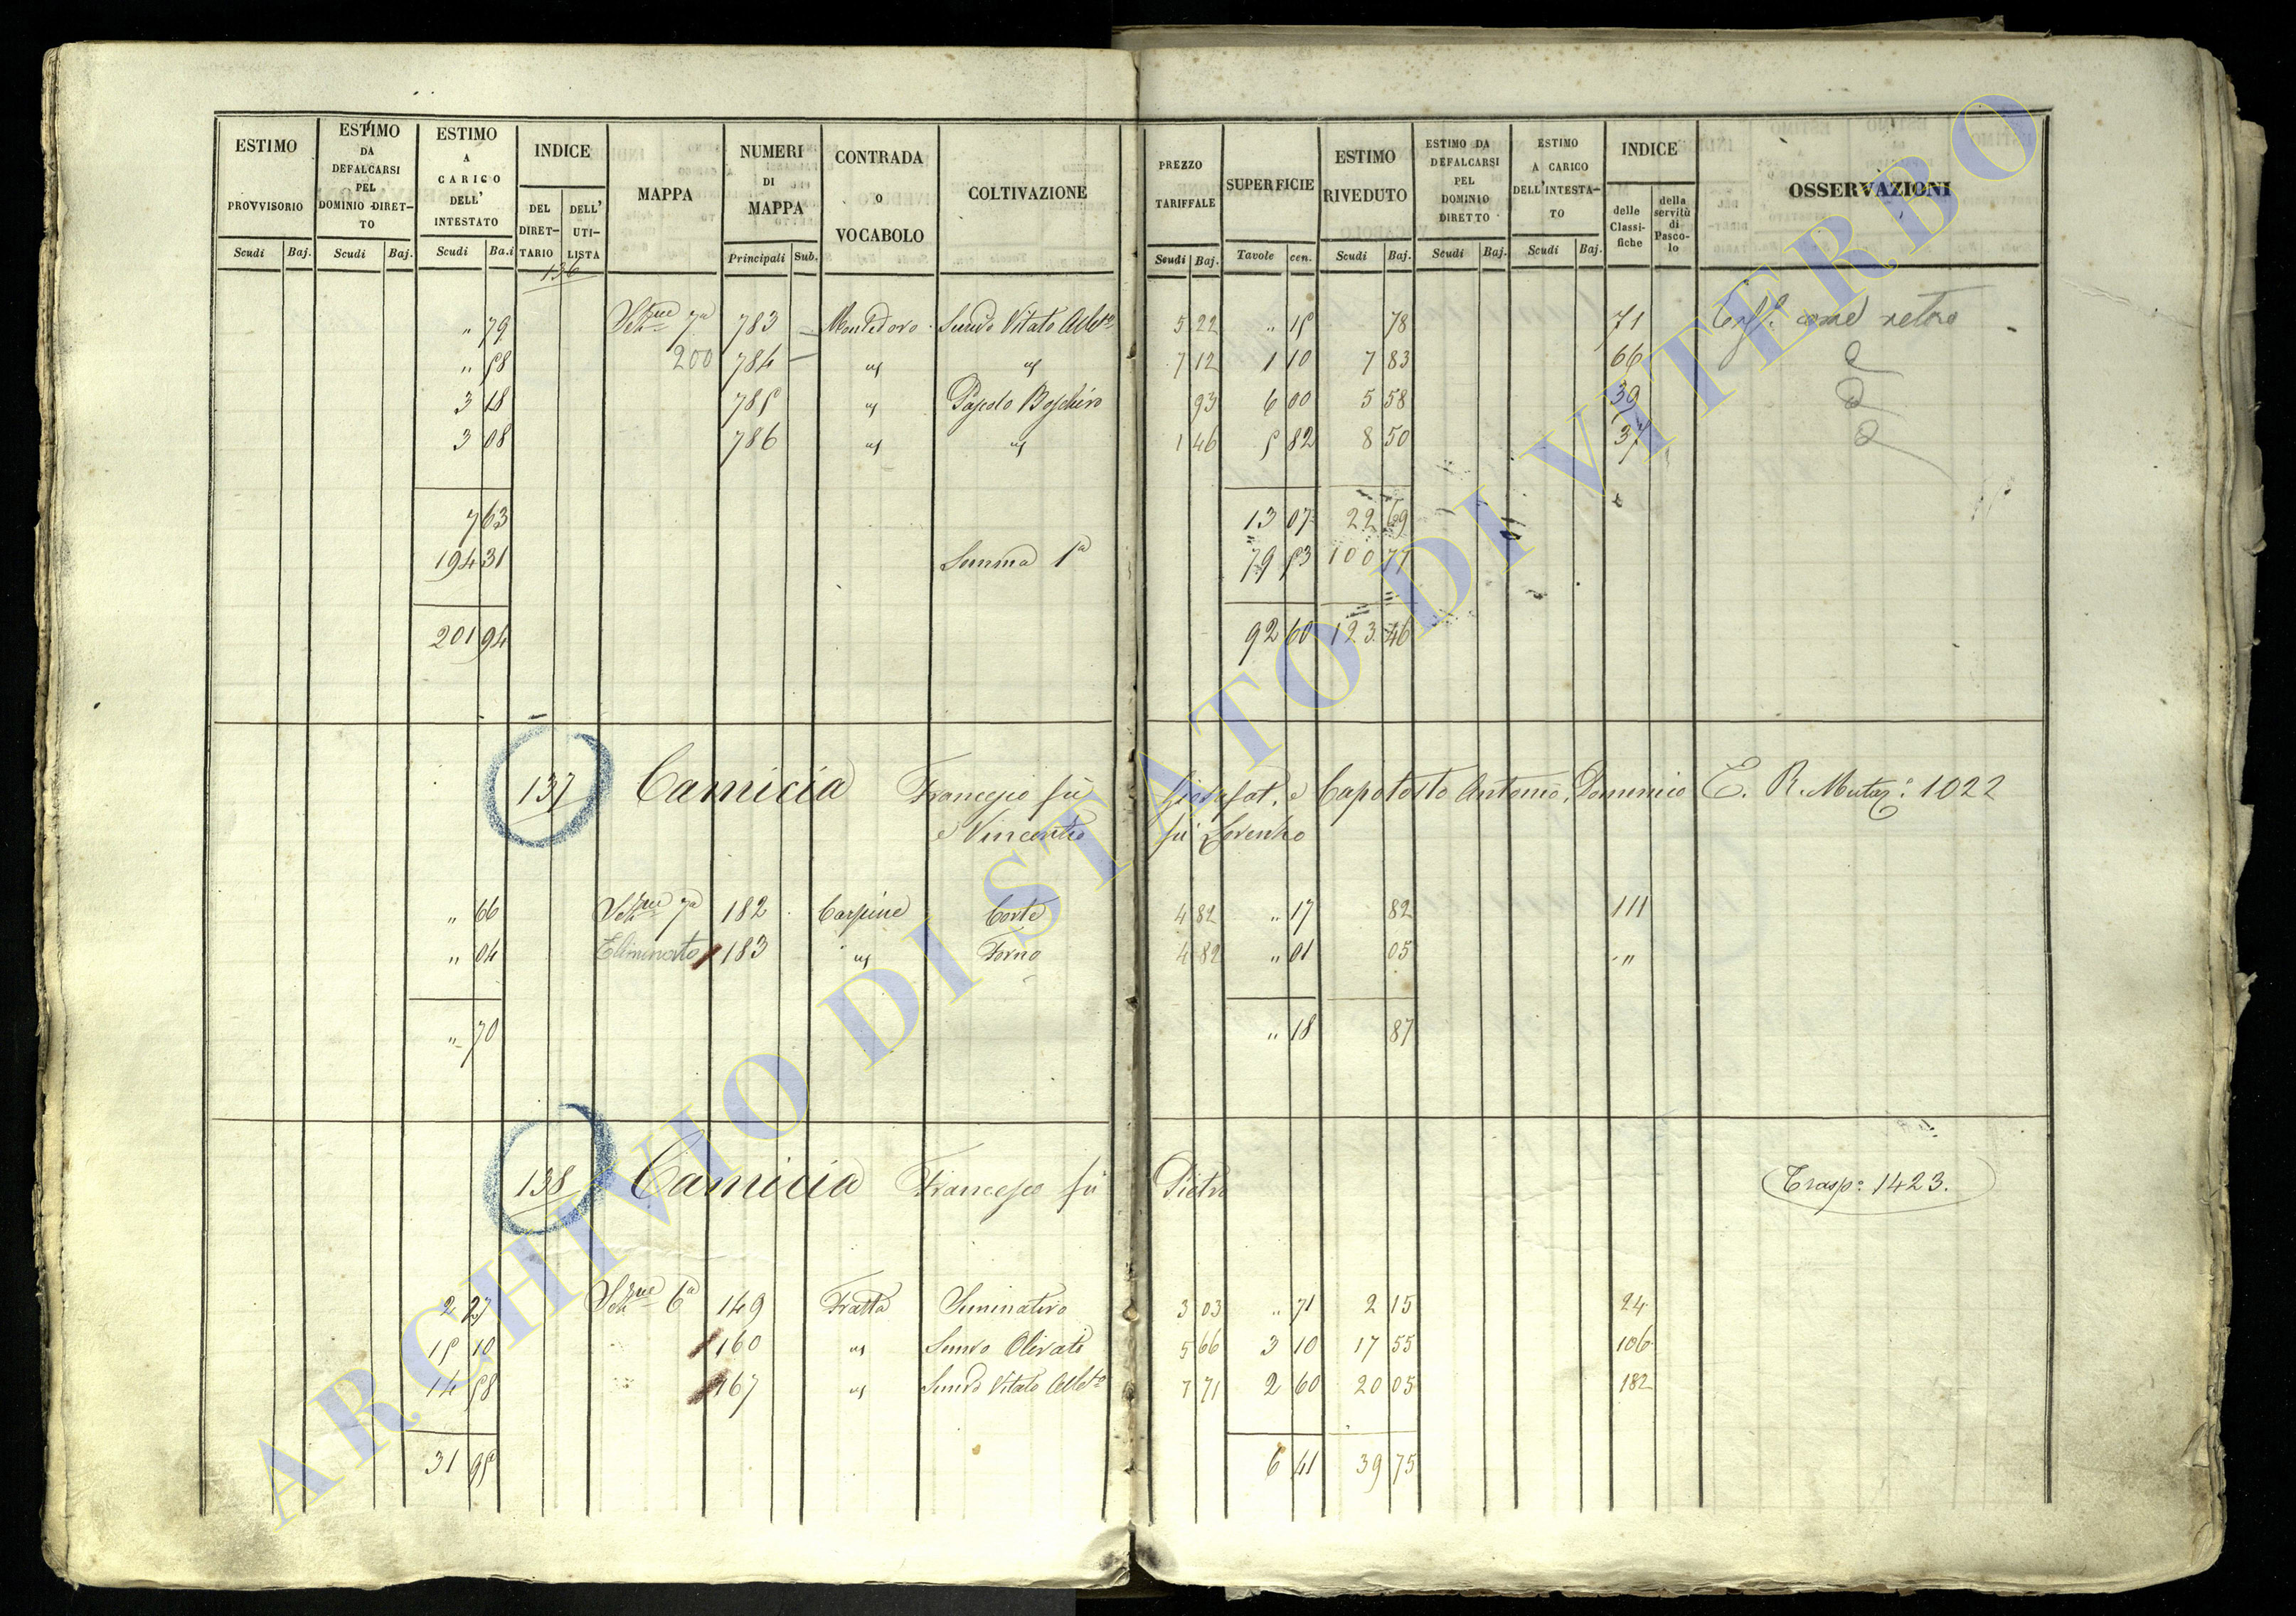 ESTIMO PROVVISORIO Scudi Baj.
ESTIMO DA DEFALCARSI PEL DOMINIO DIRET-TO Scudi Baj.
ESTIMO A CARICO DELL' INTESTATO Scudi Ba.i
INDICE DEL DIRET-TARIO DELL' UTI-LISTA
MAPPA
NUMERI DI MAPPA Principali Sub.
CONTRADA O VOCABOLO
COLTIVAZIONE
PREZZO TARIFFALE Scudi Baj.
SUPERFICIE Tavole cen.
ESTIMO RIVEDUTO Scudi Baj.
ESTIMO DA DEFALCARSI PEL DOMINIO DIRETTO Scudi Baj.
ESTIMO A CARICO DELL'INTESTA-TO Scudi Baj.
INDICE delle Classi-fiche della servitù di Pasco-lo
OSSERVAZIONI
136
„ 79 7a 783 Montedoro Semvo Vitato 5 22 „ 15 78 71 come retro
„ 58 200 784 " " 7 12 1 10 7 83 66
3 18 785 " Pascolo 93 6 00 5 58 39
3 08 786 " " 1 46 5 82 8 50 37
7 63 13 07 22 69
194 31 Summa 1a 79 53 100 77
201 94 92 60 123 46
137 Camicia Francesco fu Giosafat, e Capotosto Antonio, Domenico E. R. Mutaz: 1022
e Vincenzo fu Lorenzo
„ 66 7a 182 Carpine Corte 4 82 „ 17 82 111
„ 04 Eliminato 183 " Forno 4 82 „ 01 05 "
„ 70 „ 18 87
138 Camicia Francesco fu Pietro (Trasp: 1423.)
2 27 6a 149 Fratta Seminativo 3 03 „ 71 2 15 24
15 10 160 " Semvo Olivato 5 66 3 10 17 55 106
14 58 167 " Semvo Vitato 7 71 2 60 20 05 182
31 95 6 41 39 75
ARCHIVIO DI STATO DI VITERBO